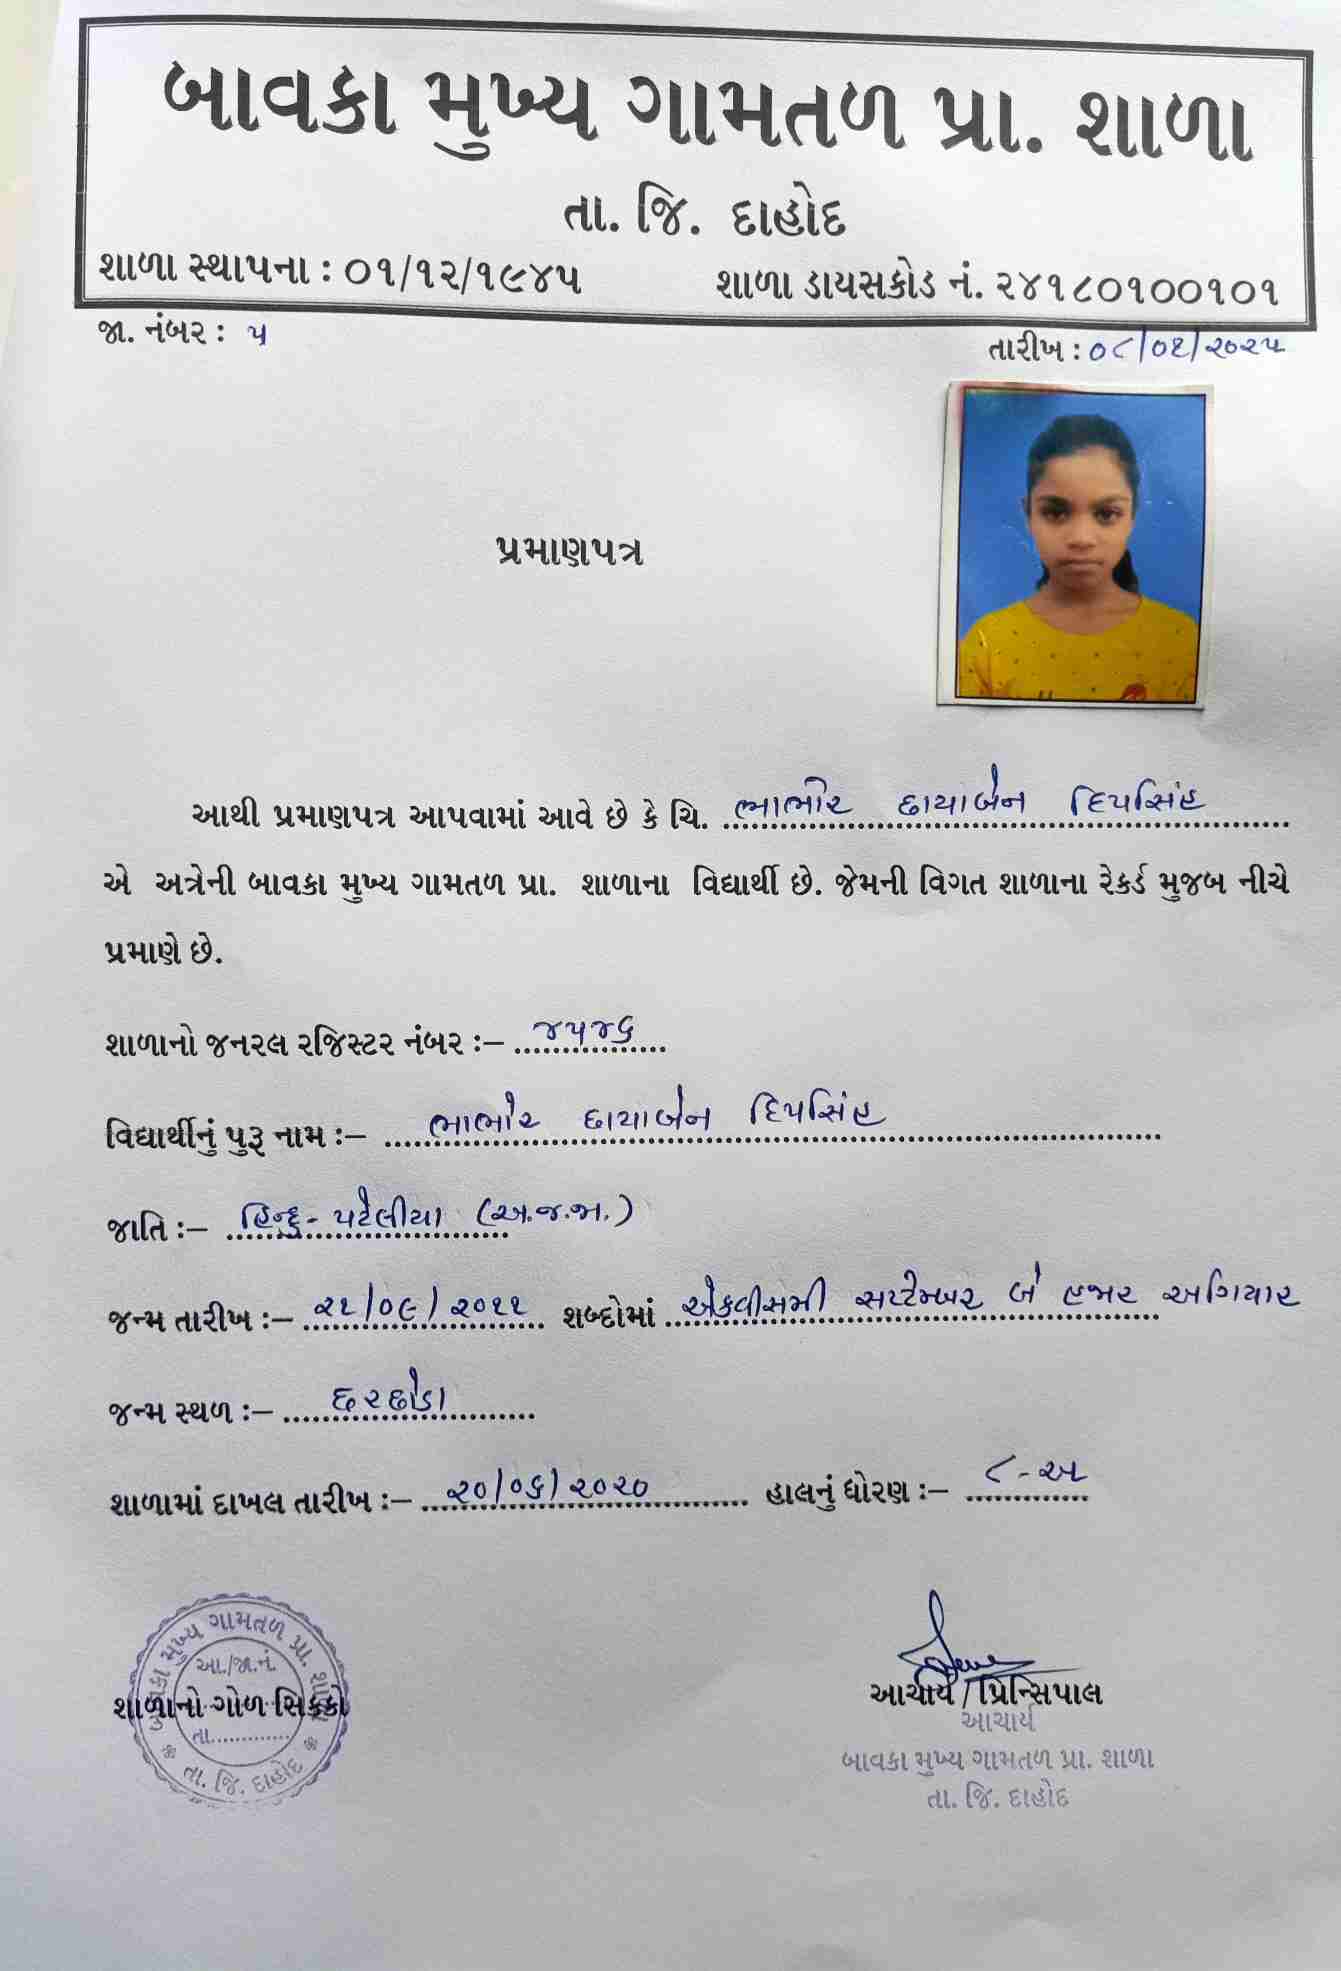 બાવકા મુખ્ય ગામતળ પ્રા. શાળા
તા. જિ. દાહોદ
શાળા સ્થાપના : ૦૧/૧૨/૧૯૪૫ શાળા ડાયસકોડ નં. ૨૪૧૮૦૧૦૦૧૦૧
જા. નંબર : ૫ તારીખ : ૦૮/૦૧/૨૦૨૫
પ્રમાણપત્ર
આથી પ્રમાણપત્ર આપવામાં આવે છે કે ચિ. ભાભોર છાયાબેન દિપસિંહ
એ અત્રેની બાવકા મુખ્ય ગામતળ પ્રા. શાળાના વિદ્યાર્થી છે. જેમની વિગત શાળાના રેકર્ડ મુજબ નીચે
પ્રમાણે છે.
શાળાનો જનરલ રજિસ્ટર નંબર :– ૪૫૪૬
વિદ્યાર્થીનું પુરૂ નામ :– ભાભોર છાયાબેન દિપસિંહ
જાતિ :– હિન્દુ - પટેલીયા (અ.જ.જા.)
જન્મ તારીખ :– ૨૧/૦૯/૨૦૧૧ શબ્દોમાં એકવીસમી સપ્ટેમ્બર બે હજાર અગિયાર
જન્મ સ્થળ :– છરછોડા
શાળામાં દાખલ તારીખ :– ૨૦/૦૬/૨૦૨૦ હાલનું ધોરણ :– ૮-અ
બાવકા મુખ્ય ગામતળ પ્રા. શાળા
આ./જા.નં.
શાળાનો ગોળ સિક્કો
તા.............
તા. જિ. દાહોદ
આચાર્ય / પ્રિન્સિપાલ
આચાર્ય
બાવકા મુખ્ય ગામતળ પ્રા. શાળા
તા. જિ. દાહોદ